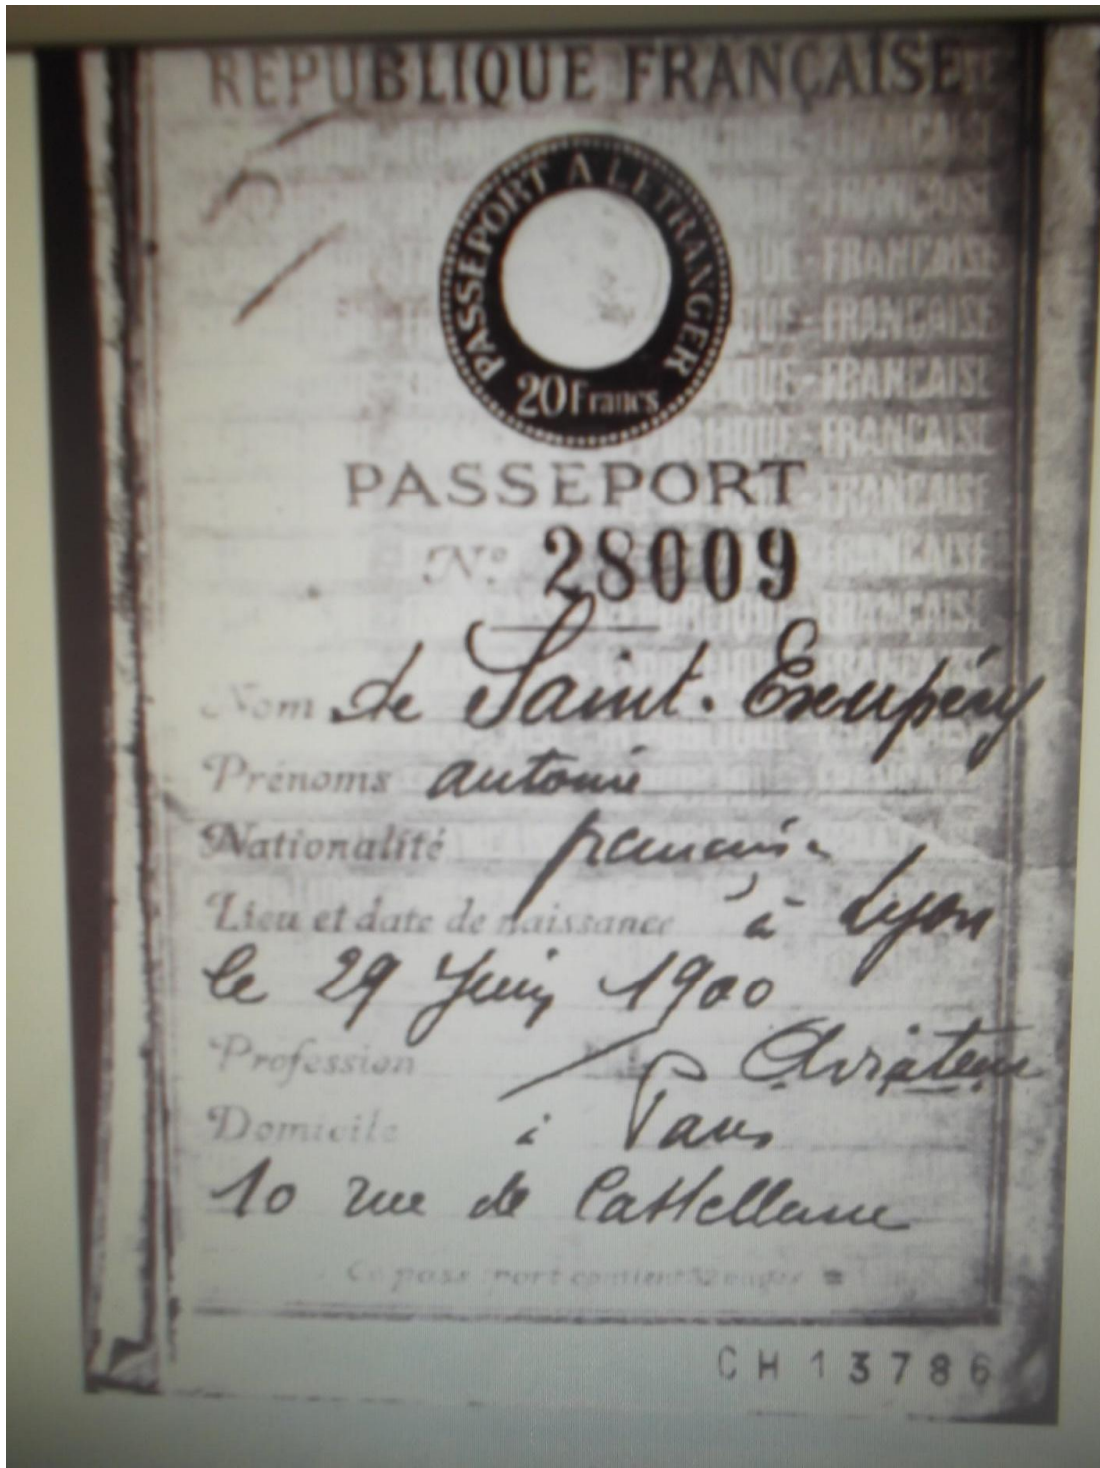 RÉPUBLIQUE FRANÇAISE
PASSEPORT A L'ETRANGER
20 Francs
PASSEPORT
N° 28009
Nom de Saint-Exupéry
Prénoms antoine
Nationalité française
Lieu et date de naissance à Lyon
le 29 Juin 1900
Profession Aviateur
Domicile à Paris
10 rue de Castellane
Ce passeport contient 32 pages
CH 13786